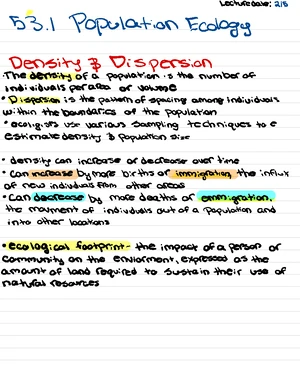 Lecture date: 2/5
53.1 Population Ecology
Density & Dispersion
· The density of a population is the number of
individuals per area or volume
• Dispersion is the pattern of spacing among individuals
within the boundaries of the population
• ecologists use various sampling techniques to e
estimate density & population size
• density can increase or decrease over time
• Can increase by more births or immigration, the influx
of new individuals from other areas
• Can decrease by more deaths or emmigration,
the movment of individuals out of a population and
into other locations
• ecological footprint - the impact of a person or
community on the enviorment, expressed as the
amount of land required to sustain their use of
natural resources